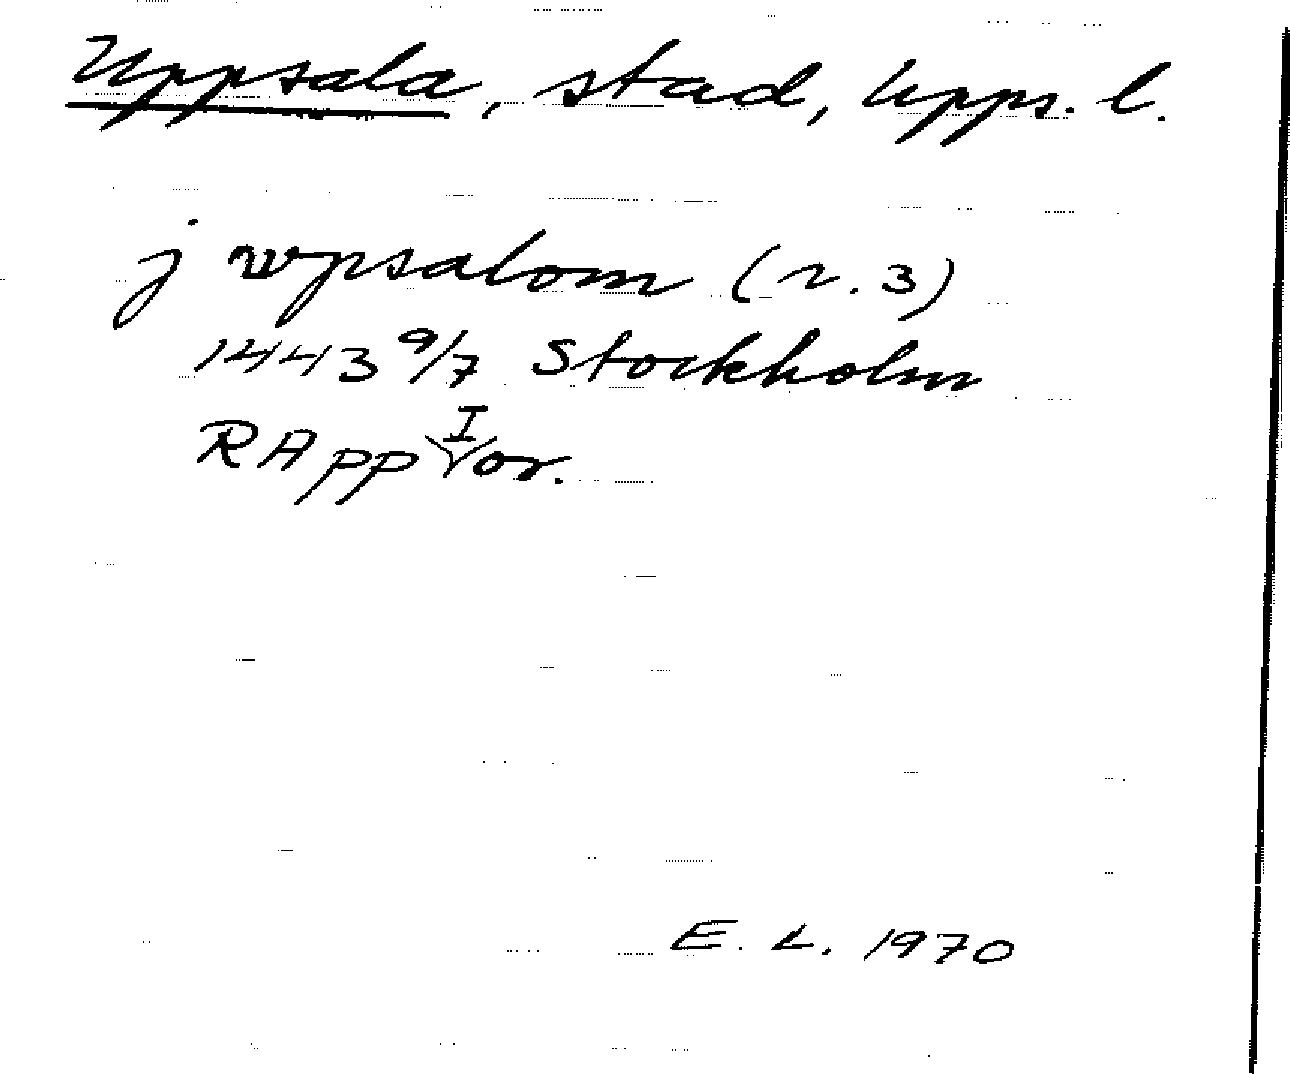 Uppsala, stad, Upps. l.
j wpsalom (r. 3)
1443 9/7 Stockholm
RApp I or.
E. L. 1970